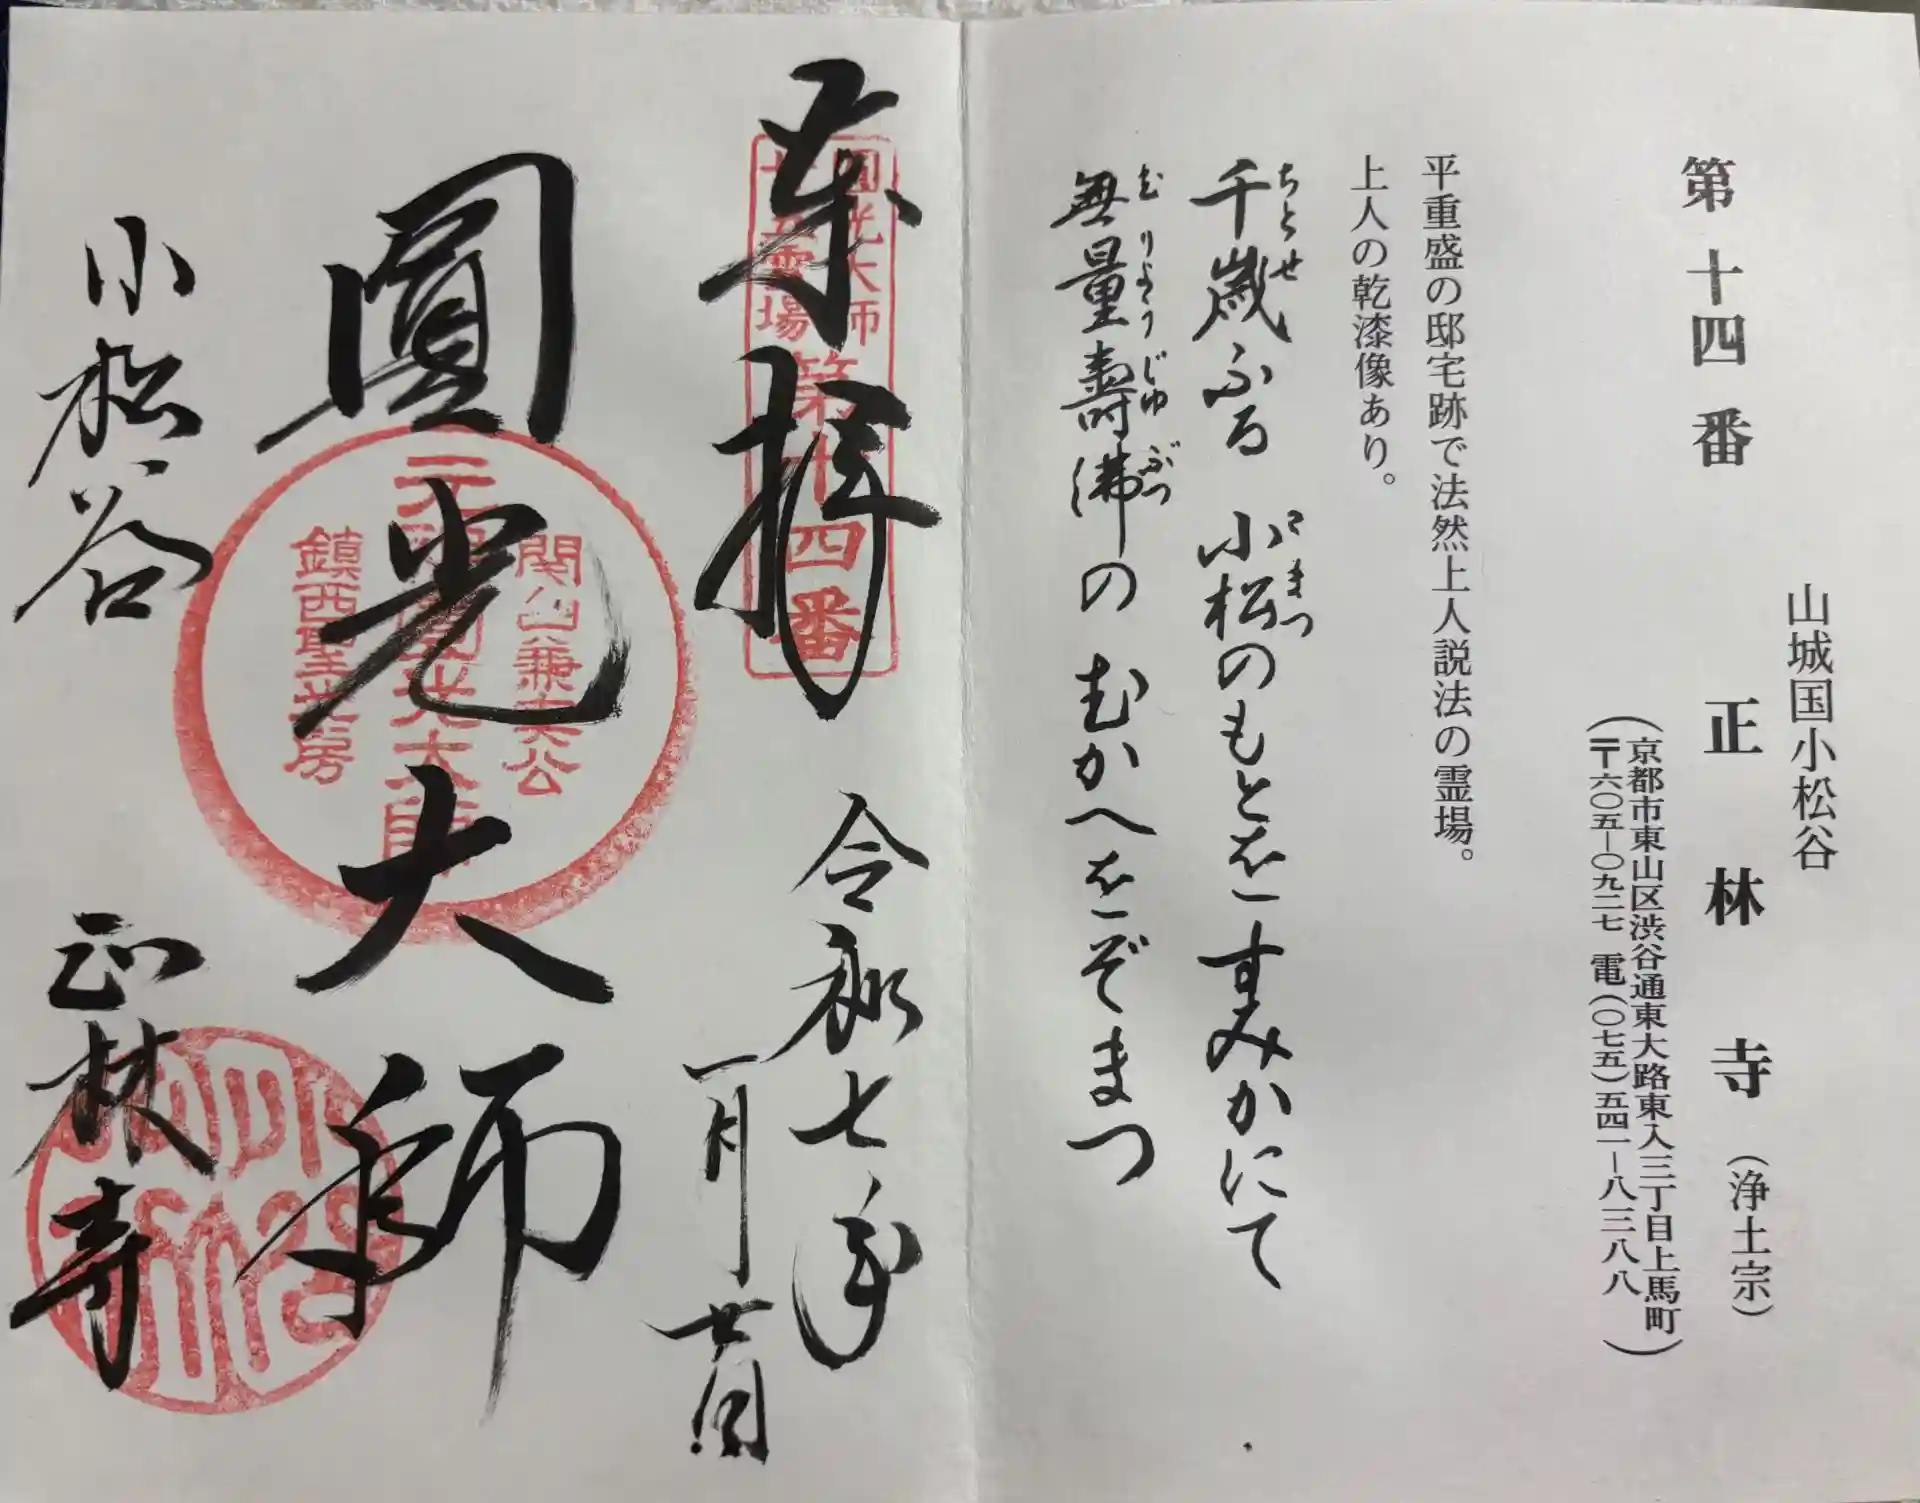 山城国小松谷
第十四番 正林寺（浄土宗）
（京都市東山区渋谷通東大路東入三丁目上馬町
〒六〇五ー〇九二七 電（〇七五）五四一ー八三八八）
平重盛の邸宅跡で法然上人説法の霊場。
上人の乾漆像あり。
千歳ふる 小松のもとをすみかにて
ちとせ こまつ
無量壽佛の むかへをぞまつ
むりょうじゅぶつ
奉拝 令和七年
一月廿日
圓光大師
二十五霊場
第十四番
圓光大師
関山兼実公
元祖圓光大師
鎮西聖光房
小松谷 正林寺